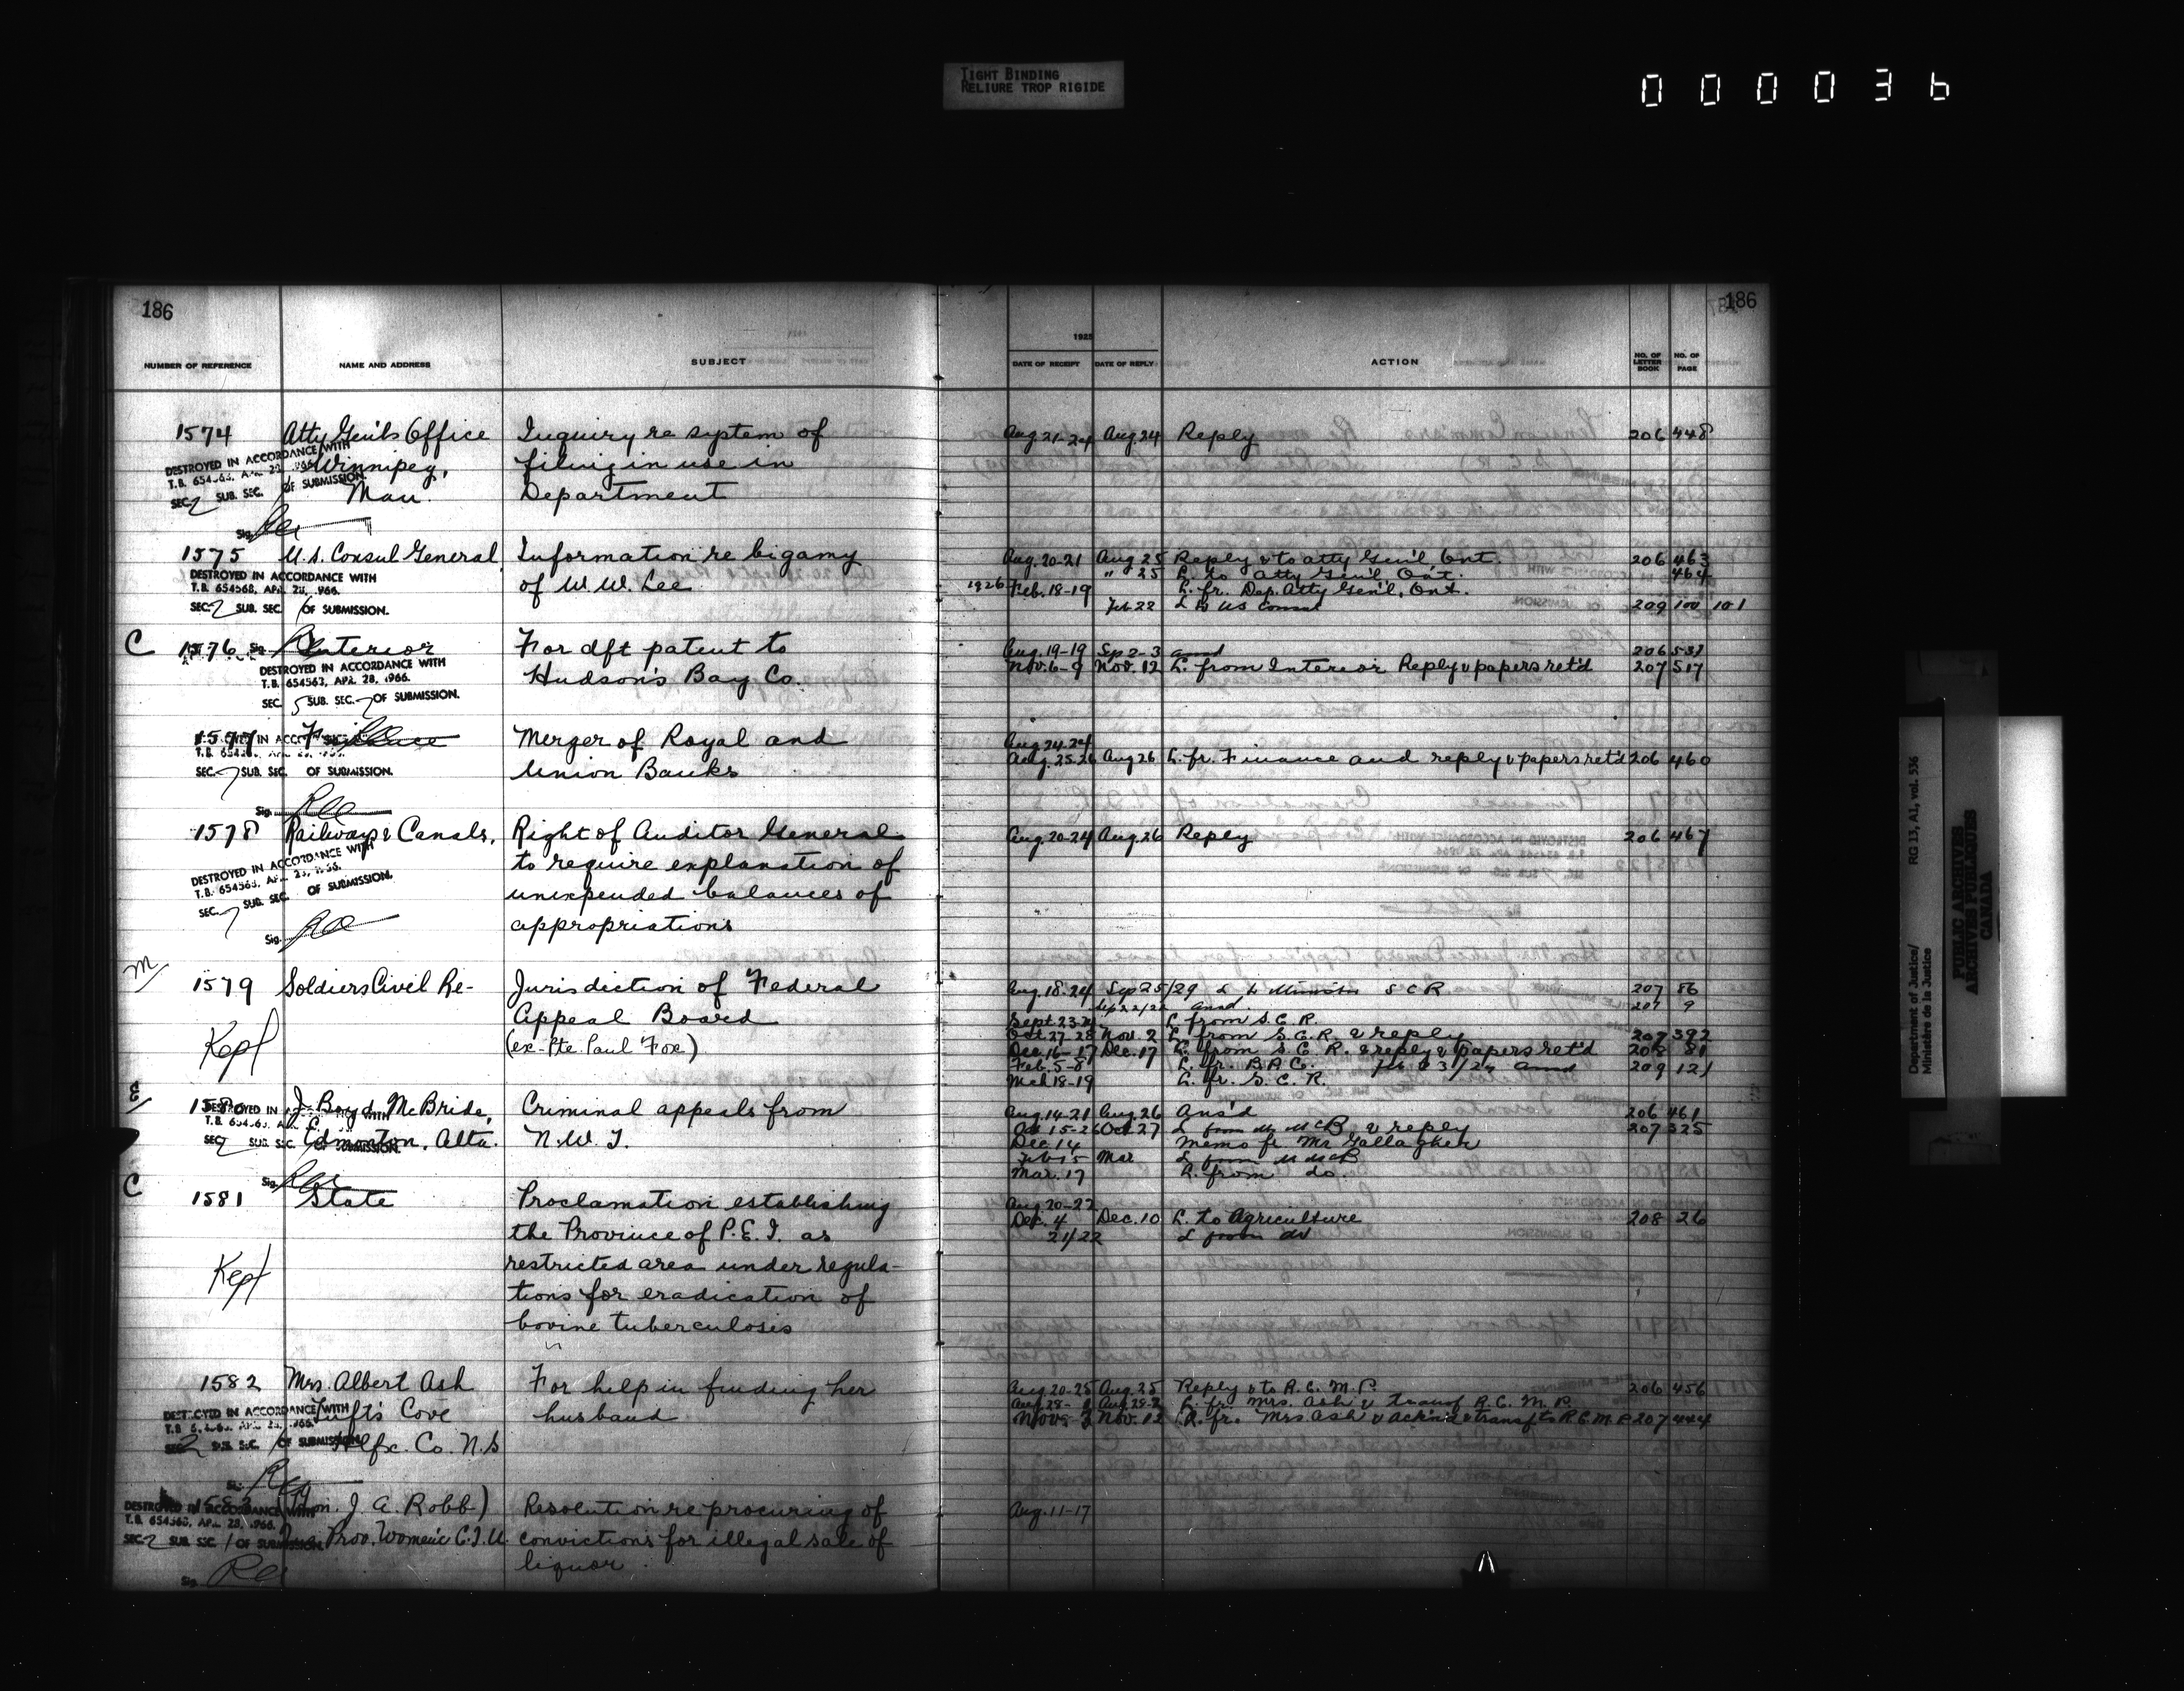 TIGHT BINDING
RELIURE TROP RIGIDE
000036
186
NUMBER OF REFERENCE NAME AND ADDRESS SUBJECT
1574 Atty Gen'ls Office Inquiry re system of
Winnipeg, filing in use in
Man. Department
DESTROYED IN ACCORDANCE WITH
T.B. 654563, APR. 28, 1966
SEC. 2 SUB. SEC. 1 OF SUBMISSION.
Sig.
1575 U.S. Consul General Information re bigamy
of W. W. Lee
DESTROYED IN ACCORDANCE WITH
T.B. 654563, APR. 28, 1966.
SEC. 2 SUB. SEC. 1 OF SUBMISSION.
Sig.
C 1576 Interior For dft patent to
Hudson's Bay Co.
DESTROYED IN ACCORDANCE WITH
T.B. 654563, APR. 28, 1966.
SEC. 5 SUB. SEC. 7 OF SUBMISSION.
1577 Finance Merger of Royal and
Union Banks
SEC. 7 SUB. SEC. OF SUBMISSION.
Sig.
1578 Railways & Canals, Right of Auditor General
to require explanation of
unexpended balances of
appropriations
DESTROYED IN ACCORDANCE WITH
T.B. 654563, APR. 28, 1966.
SEC. 7 SUB. SEC. OF SUBMISSION.
Sig.
M 1579 Soldiers Civil Re- Jurisdiction of Federal
Appeal Board
Kept (ex-Pte. Paul Fox)
E 1580 J. Boyd McBride, Criminal appeals from
Edmonton, Alta. N.W.T.
SEC. 2 SUB. SEC. OF SUBMISSION.
Sig.
C 1581 State Proclamation establishing
the Province of P.E.I. as
Kept restricted area under regula-
tions for eradication of
bovine tuberculosis
1582 Mrs. Albert Ash For help in finding her
Tuft's Cove husband
Hlfx. Co. N.S
DESTROYED IN ACCORDANCE WITH
SEC. 2 SUB. SEC. 1 OF SUBMISSION.
Sig.
1583 (Hon. J. A. Robb) Resolution re procuring of
Prov. Women's C.T.U. convictions for illegal sale of
liquor
DESTROYED IN ACCORDANCE WITH
T.B. 654563, APR. 28, 1966.
SEC. 2 SUB. SEC. 1 OF SUBMISSION.
Sig.
186
1925
DATE OF RECEIPT DATE OF REPLY ACTION NO. OF LETTER BOOK NO. OF PAGE
Aug. 21-24 Aug. 24 Reply 206 448
Aug. 20-21 Aug 25 Reply & to Atty Gen'l, Ont. 206 463
" 25 L. to Atty Gen'l. Ont. 464
1926 Feb. 18-19 L. fr. Dep. Atty Gen'l. Ont.
Feb 22 L to US Consul 209 100 101
Aug. 19-19 Sep 2-3 ansd 206 531
Nov. 6-9 Nov. 12 L. from Interior Reply & papers ret'd 207 517
Aug. 24-24
Aug. 25-26 Aug 26 L. fr. Finance and reply & papers ret'd 206 460
Aug. 20-24 Aug. 26 Reply 206 467
Aug. 18-24 Sep 25/29 L to Minister S C R. 207 86
Sep 22/22 ansd 207 9
Sept. 23-24 L from S. C. R.
Oct 27-28 Nov. 2 L. from S. C. R. & reply 207 392
Dec. 16-17 Dec. 17 L. from S. C. R. & reply & papers ret'd 208 81
Feb. 5-8 L. fr. B.A.C. ansd 209 121
Mch 18-19 L. fr. S. C. R.
Aug. 14-21 Aug. 26 Ans'd 206 461
Oct 15-26 Oct 27 L from Mr McB & reply 207 325
Dec. 14 Memo fr Mr Gallagher
Feb 15 Mar L from M McB
Mar. 17 L. from do.
Aug. 20-22
Dec. 4 Dec. 10 L. to Agriculture 208 26
21/22 L from do
Aug. 20-25 Aug. 25 Reply & to R. C. M. P. 206 456
L. fr. Mrs. Ash & transf R. C. M. P.
Nov. 3 Nov. 12 L. fr. Mrs Ash & ackn'd & transf to R.C.M.P. 207 444
Aug. 11-17
Department of Justice/
Ministère de la Justice
RG 13, A1, vol. 536
PUBLIC ARCHIVES
ARCHIVES PUBLIQUES
CANADA